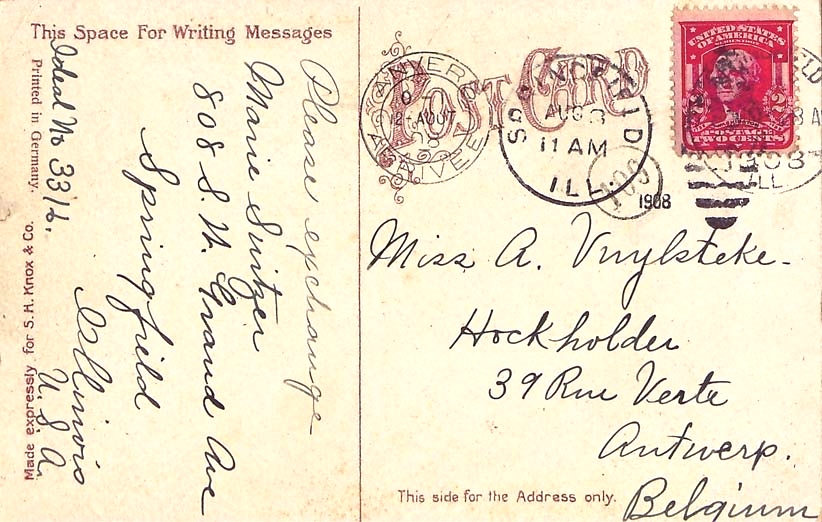 This Space For Writing Messages
Please exchange
Marie Suitzer
808 S. W. Grand Ave
Springfield
Illinois
U. S. A.
Ideal No 3316.
Printed in Germany.
Made expressly for S. H. Knox & Co.
POST CARD
ANVERS
12-AOUT
ARRIVEE
SPRINGFIELD
AUG 3
11 AM
ILL.
1908
UNITED STATES
OF AMERICA
2 2
POSTAGE
TWO CENTS
1908
ILL
Miss A. Vuylsteke-
Hockholder
39 Rue Verte
Antwerp.
Belgium
This side for the Address only.